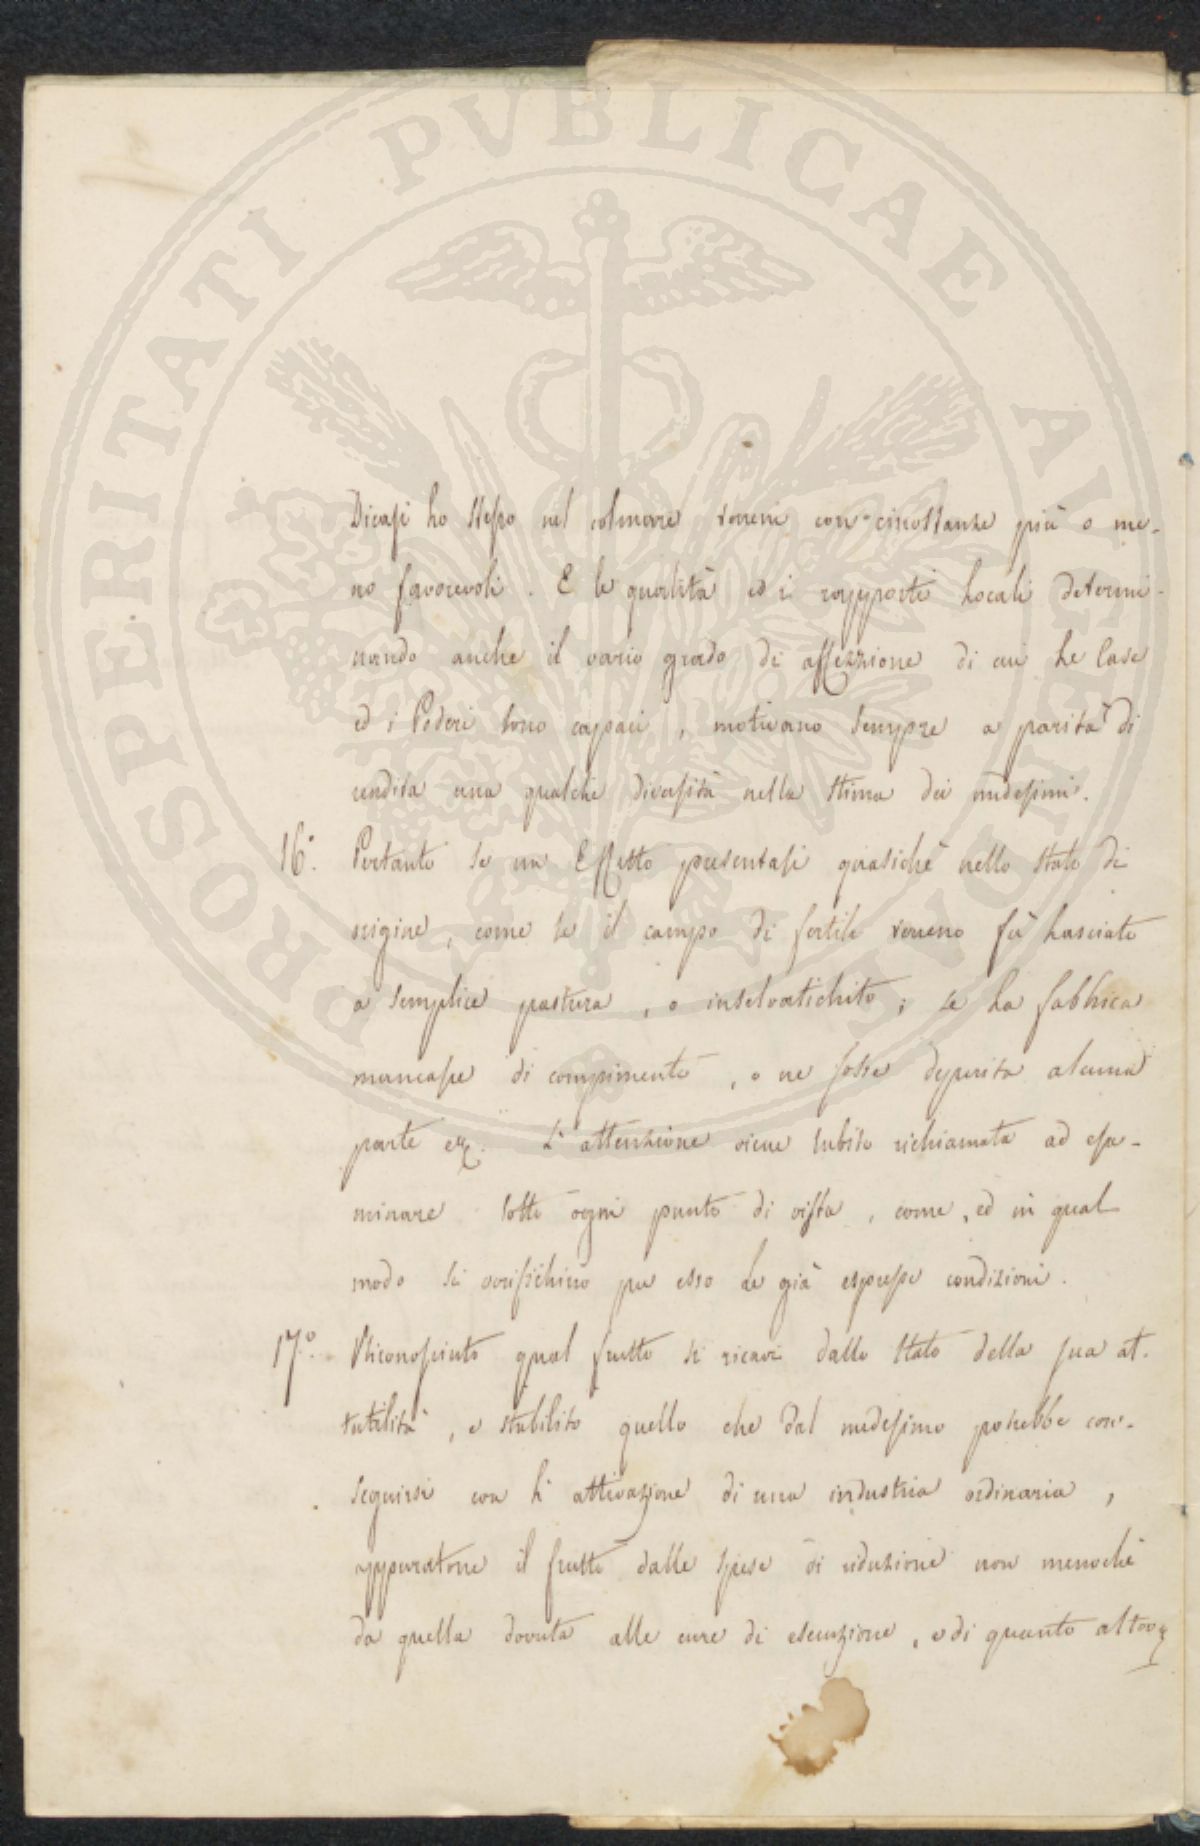 PROSPERITATI PVBLICAE AVGENDAE
Dicasi lo stesso nel colmare terreni con circostanze più o me-
no favorevoli. E le qualità ed i rapporti locali determi-
nando anche il vario grado di affezzione di cui le Case
ed i Poderi sono capaci, motivano sempre a parità di
rendita una qualche diversità nella stima dei medesimi.
16.° Pertanto se un Effetto presentasi quasichè nello stato di
origine, come se il campo di fertile terreno fù lasciato
a semplice pastura, o inselvatichito; se la fabbrica
mancasse di compimento, o ne fosse deperita alcuna
parte etc. L'attenzione viene subito richiamata ad esa-
minare sotto ogni punto di vista, come, ed in qual
modo si verifichino per esso le già espresse condizioni.
17.° Riconosciuto qual frutto si ricavi dallo stato della sua at-
tualità, e stabilito quello che dal medesimo potrebbe con-
seguirsi con l'attivazione di una industria ordinaria,
appuratone il frutto dalle spese di riduzione non menochè
da quella dovuta alle cure di esecuzione, e di quanto